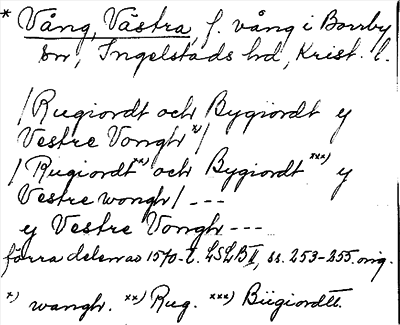 * Vång, Västra f. vång i Borrby
sn, Ingelstads hd, Krist. l.
/Rugiordt och Bygiordt y
Vestre Vongh *)/
/Rugiordt **) och Bygiordt ***) y
Vestre wongh/ ---
y Vestre Vongh ---
förra delen av 1570-t. LSLB II, ss. 253-255. orig.
*) wangh. **) Rug. ***) Biigiordtt.